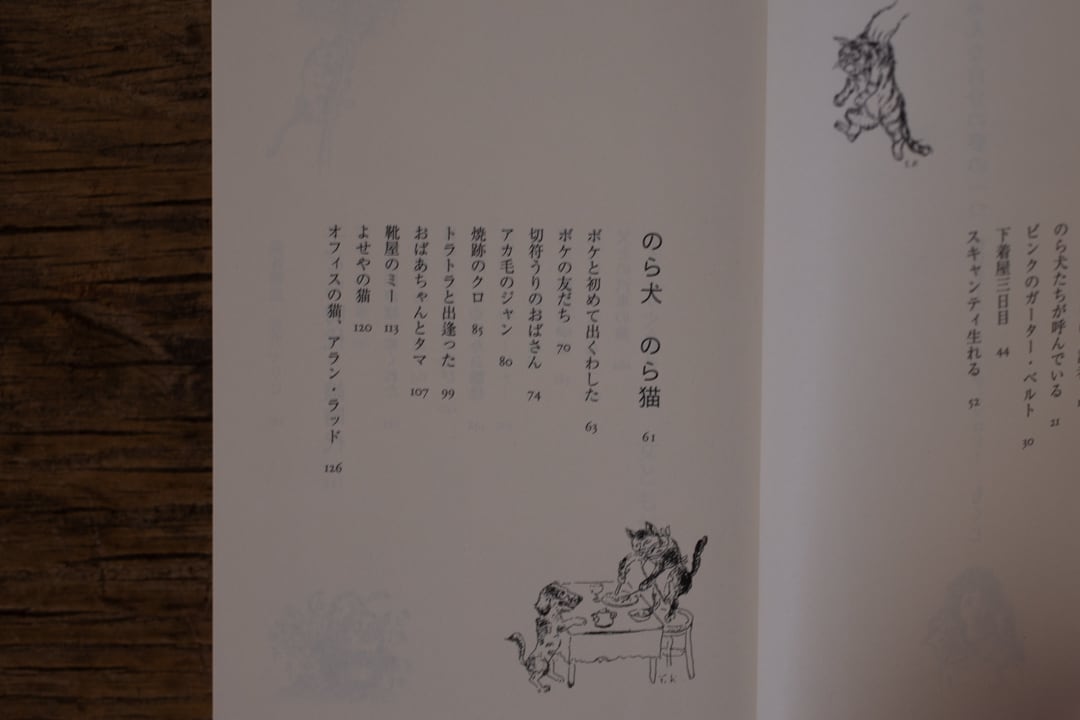 のら犬たちが呼んでいる 21
ピンクのガーター・ベルト 30
下着屋三日目 44
スキャンティ生れる 52
のら犬 のら猫 61
ボケと初めて出くわした 63
ボケの友だち 70
切符うりのおばさん 74
アカ毛のジャン 80
焼跡のクロ 85
トラトラと出逢った 99
おばあちゃんとタマ 107
靴屋のミー 113
よせやの猫 120
オフィスの猫、アラン・ラッド 126